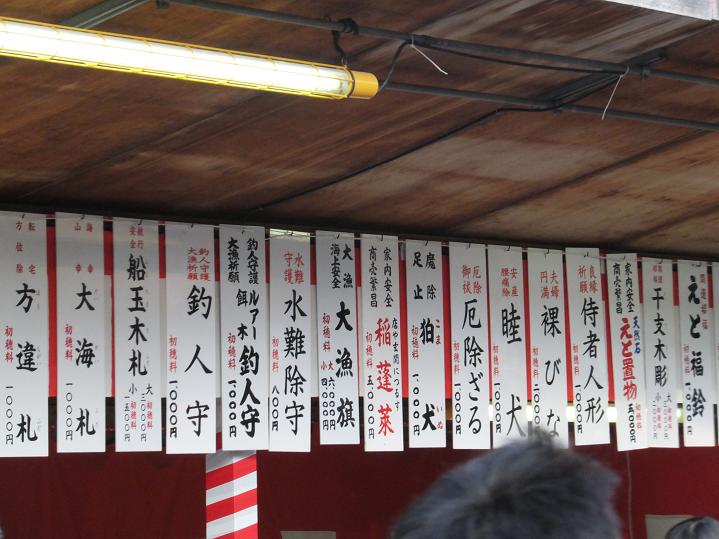 えと福鈴
初穂料
一、〇〇〇円
干支木彫
初穂料
家内安全
商売繁昌
天然石
えと置物
初穂料
良縁
祈願
侍者人形
初穂料
一、〇〇〇円
夫婦
円満
裸びな
初穂料
二、〇〇〇
安産
腰痛除
睦犬
初穂料
一、〇〇〇
厄除
御祓
厄除ざる
初穂料
一、〇〇〇円
魔除
足止
狛犬
こま いぬ
初穂料
一、〇〇〇円
家内安全
商売繁昌
店や玄関につるす
稲蓬莱
初穂料
五、〇〇〇円
大漁
海上安全
大漁旗
初穂料
大
小
水難
守護
水難除守
初穂料
八〇〇円
釣人守護
大漁祈願
ルアー
餌木
釣人守
初穂料
一、〇〇〇円
釣人守護
大漁祈願
釣人守
初穂料
一、〇〇〇円
航行
安全
船玉木札
初穂料
大 三〇〇〇円
小 一〇〇〇円
海幸
山幸
大海札
初穂料
一、〇〇〇円
転宅
方位除
方違札
初穂料
一、〇〇〇円